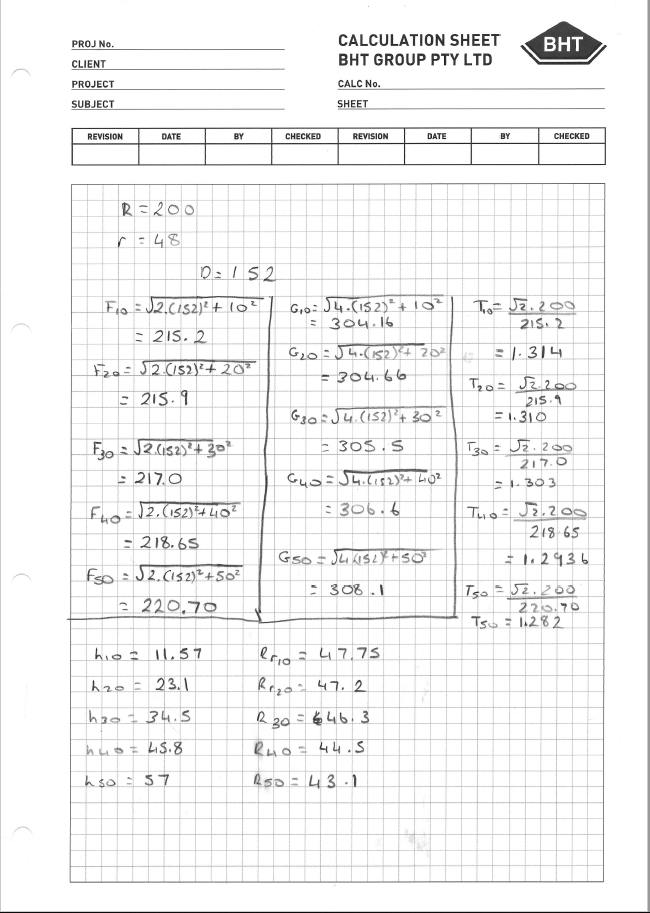 PROJ No.
CLIENT
PROJECT
SUBJECT
CALCULATION SHEET
BHT GROUP PTY LTD
BHT
CALC No.
SHEET
REVISION DATE BY CHECKED REVISION DATE BY CHECKED
R = 200
r = 48
D = 152
F10 = √2.(152)² + 10²
= 215.2
F20 = √2.(152)² + 20²
= 215.9
F30 = √2.(152)² + 30²
= 217.0
F40 = √2.(152)² + 40²
= 218.65
F50 = √2.(152)² + 50²
= 220.70
G10 = √4.(152)² + 10²
= 304.16
G20 = √4.(152)² + 20²
= 304.66
G30 = √4.(152)² + 30²
= 305.5
G40 = √4.(152)² + 40²
= 306.6
G50 = √4(152)² + 50²
= 308.1
T10 = √2.200
215.2
= 1.314
T20 = √2.200
215.9
= 1.310
T30 = √2.200
217.0
= 1.303
T40 = √2.200
218.65
= 1.2936
T50 = √2.200
220.70
T50 = 1.282
h10 = 11.57
h20 = 23.1
h30 = 34.5
h40 = 45.8
h50 = 57
Rr10 = 47.75
Rr20 = 47.2
R30 = 46.3
R40 = 44.5
R50 = 43.1